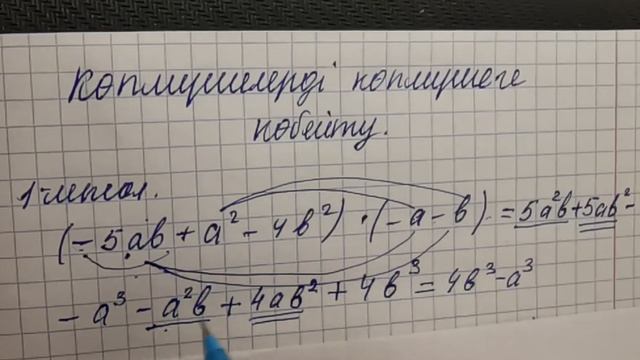 Көпмүшелерді көпмүшеге
көбейту.
1 мысал.
(-5ab + a² - 4b²) · (-a - b) = 5a²b + 5ab² -
- a³ - a²b + 4ab² + 4b³ = 4b³ - a³